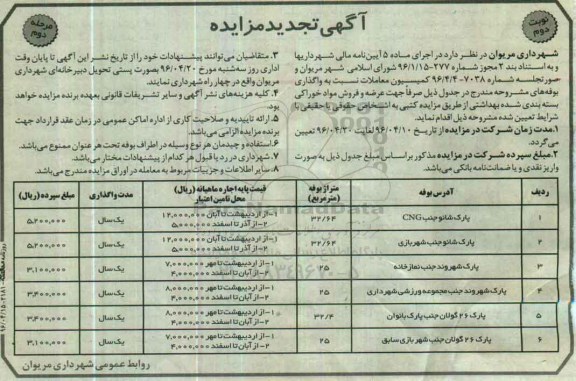 آگهی تجدید مزایده
نوبت دوم
مرحله دوم
شهرداری مریوان در نظر دارد در اجرای ماده ۵ آیین‌نامه مالی شهرداریها
و به استناد بند ۲ مجوز شماره ۲۷۷-۹۶/۱/۱۵ شورای اسلامی شهر مریوان و
صورتجلسه شماره ۷۰۳۸-۹۶/۴/۴ کمیسیون معاملات نسبت به واگذاری
بوفه‌های مشروحه مندرج در جدول ذیل صرفاً جهت عرضه و فروش مواد خوراکی
بسته بندی شده بهداشتی از طریق مزایده کتبی به اشخاص حقوقی یا حقیقی با
شرایط تعیین شده مشروحه ذیل اقدام نماید.
۱. مدت زمان شرکت در مزایده از تاریخ ۹۶/۰۴/۱۰ لغایت ۹۶/۰۴/۲۰ تعیین
می‌گردد.
۲. مبلغ سپرده شرکت در مزایده مذکور براساس مبلغ جدول ذیل به صورت
واریز نقدی و یا ضمانت‌نامه بانکی می‌باشد.
۳. متقاضیان می‌توانند پیشنهادات خود را از تاریخ نشر این آگهی تا پایان وقت
اداری روز سه‌شنبه مورخ ۹۶/۰۴/۲۰ بصورت پستی تحویل دبیرخانه‌ای شهرداری
مریوان واقع در چهارراه شهرداری نمایند.
۴. کلیه هزینه‌های نشر آگهی و سایر تشریفات قانونی بعهده برنده مزایده خواهد
بود.
۵. ارائه تاییدیه و صلاحیت کاری از اداره اماکن عمومی در زمان عقد قرارداد جهت
برنده مزایده الزامی می‌باشد.
۶. استفاده و چیدمان هر نوع وسیله در اطراف بوفه تحت هر عنوان ممنوع می‌باشد.
۷. شهرداری در رد یا قبول هر کدام از پیشنهادات مختار می‌باشد.
۸. سایر اطلاعات و جزییات مربوط به معامله در اوراق مزایده مندرج می‌باشد.
ردیف آدرس بوفه متراژ بوفه (مترمربع) قیمت پایه اجاره ماهیانه (ریال) محل تامین اعتبار مدت واگذاری مبلغ سپرده (ریال)
۱ پارک شانو جنب CNG ۳۲/۶۴ ۱-از اردیبهشت تا آبان ۱۲,۰۰۰,۰۰۰ ۲-از آذر تا اسفند ۵,۰۰۰,۰۰۰ یک سال ۵,۲۰۰,۰۰۰
۲ پارک شانو جنب شهربازی ۳۲/۶۴ ۱-از اردیبهشت تا آبان ۱۲,۰۰۰,۰۰۰ ۲-از آذر تا اسفند ۵,۰۰۰,۰۰۰ یک سال ۵,۲۰۰,۰۰۰
۳ پارک شهروند جنب نمازخانه ۲۵ ۱-از اردیبهشت تا مهر ۷,۰۰۰,۰۰۰ ۲-از آبان تا اسفند ۴,۰۰۰,۰۰۰ یک سال ۳,۱۰۰,۰۰۰
۴ پارک شهروند جنب مجموعه ورزشی شهرداری ۲۵ ۱-از اردیبهشت تا مهر ۸,۰۰۰,۰۰۰ ۲-از آبان تا اسفند ۴,۰۰۰,۰۰۰ یک سال ۳,۴۰۰,۰۰۰
۵ پارک ۲۶ گولان جنب پارک بانوان ۳۲/۴ ۱-از اردیبهشت تا مهر ۸,۰۰۰,۰۰۰ ۲-از آبان تا اسفند ۴,۰۰۰,۰۰۰ یک سال ۳,۴۰۰,۰۰۰
۶ پارک ۲۶ گولان جنب شهربازی سابق ۲۵ ۱-از اردیبهشت تا مهر ۷,۰۰۰,۰۰۰ ۲-از آبان تا اسفند ۴,۰۰۰,۰۰۰ یک سال ۳,۱۰۰,۰۰۰
روابط عمومی شهرداری مریوان